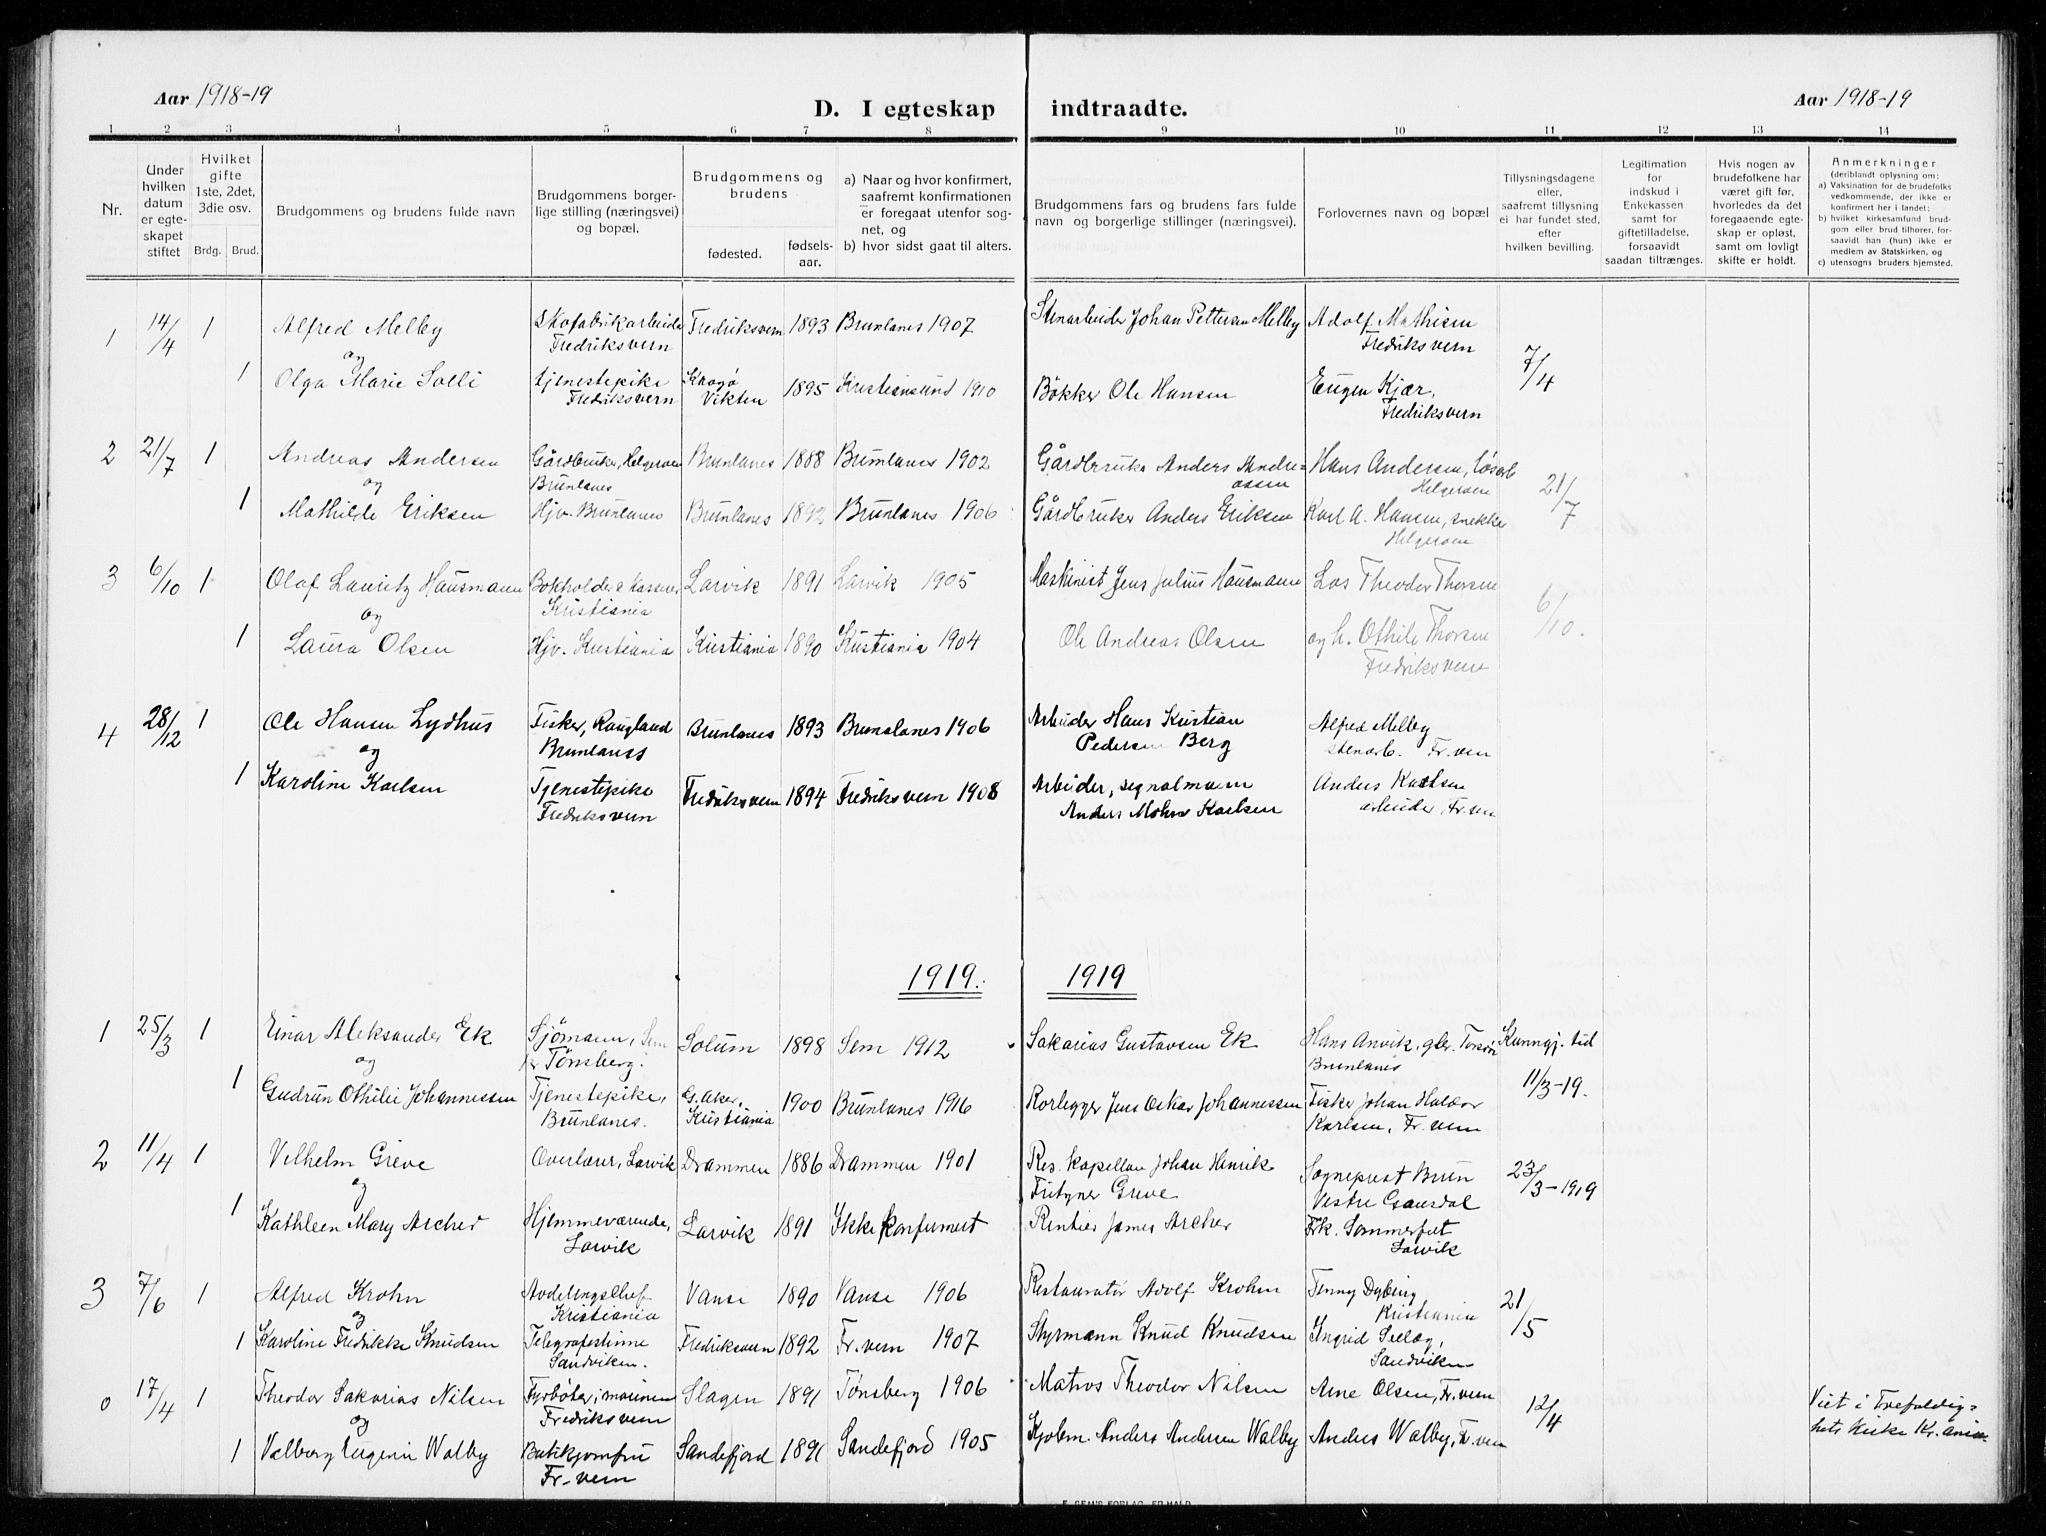 Aar 1918-19
D. I egteskap indtraadte.
Aar 1918-19
1 2 3 4 5 6 7 8 9 10 11 12 13 14
Nr.
Under hvilken datum er egteskapet stiftet
Hvilket gifte 1ste, 2det, 3die osv.
Brdg. Brud.
Brudgommens og brudens fulde navn
Brudgommens borgerlige stilling (næringsvei) og bopæl.
Brudgommens og brudens
fødested.
fødselsaar.
a) Naar og hvor konfirmert, saafremt konfirmationen er foregaat utenfor sognet, og
b) hvor sidst gaat til alters.
Brudgommens fars og brudens fars fulde navn og borgerlige stillinger (næringsvei).
Forlovernes navn og bopæl
Tillysningsdagene eller, saafremt tillysning ei har fundet sted, efter hvilken bevilling.
Legitimation for indskud i Enkekassen samt for giftetilladelse, forsaavidt saadan tiltrænges.
Hvis nogen av brudefolkene har været gift før, hvorledes da det foregaaende egteskap er opløst, samt om lovligt skifte er holdt.
Anmerkninger (deriblandt oplysning om:
a) Vaksination for de brudefolks vedkommende, der ikke er konfirmert her i landet;
b) hvilket kirkesamfund brudgom eller brud tilhører, forsaavidt han (hun) ikke er medlem av Statskirken, og
c) utensogns bruders hjemsted.
1 14/4 1 Alfred Melby Skofabrikarbeider Fredriksvern Fredriksvern 1893 Brunlanes 1907 Stenarbeider Johan Pettersen Melby Adolf Mathisen Fredriksvern 7/4
og
1 Olga Marie Solli tjenestepike Fredriksvern Vikten 1895 Kristiansund 1910 Bökker Ole Hansen Eugen Kjær, Fredriksvern
2 21/7 1 Andreas Andersen Gårdbruker, Helgeroen Brunlanes Brunlanes 1888 Brunlanes 1902 Gårdbruker Anders Andreassen Hans Andersen, Helgeroen 21/7
og
1 Mathilde Eriksen Hjv. Brunlanes Brunlanes 1892 Brunlanes 1906 Gårdbruker Anders Eriksen Karl A. Hansen, snekker Helgeroen
3 6/10 1 Olaf Lauritz Hausmann Bokholder & kasserer, Kristiania Larvik 1891 Larvik 1905 Maskinist Jens Julius Hausmann Los Theodor Thorsen 6/10.
og
1 Laura Olsen Hjv. Kristiania Kristiania 1890 Kristiania 1904 Ole Andreas Olsen og h. Othile Thorsen Fredriksvern
4 28/12 1 Ole Hansen Lydhus Fisker, Raugland Brunlanes Brunlanes 1893 Brunlanes 1906 Arbeider Hans Kristian Pedersen Berg Alfred Melby stenarb. Fr.vern
og
1 Karoline Karlsen Tjenestepike Fredriksvern Fredriksvern 1894 Fredriksvern 1908 Arbeider, signalmann Anders Mohn Karlsen Anders Karlsen arbeider, Fr.vern
1919. 1919
1 25/3 1 Einar Aleksander Ek Sjömann, Sem pr Tönsberg. Solum 1898 Sem 1912 Sakarias Gustavsen Ek Hans Anvik, gbr. Brunlanes Kunngj. tid 11/3-19.
og
1 Gudrun Othilie Johannessen Tjenestepike, Brunlanes. G. Aker, Kristiania 1900 Brunlanes 1916 Rorlegger Jens Oskar Johannessen Fisker Johan Haldor Karlsen, Fr.vern
2 11/4 1 Vilhelm Greve Overlærer, Larvik Drammen 1886 Drammen 1901 Res. kapellan Johan Henrik Fritzner Greve Sogneprest Brun Vestre Gausdal 23/3-1919
og
1 Kathleen Mary Archer Hjemmeværende, Larvik Larvik 1891 Ikke konfirmert Rentier James Archer Frk. Sommerfelt Larvik
3 7/6 1 Alfred Krohn Avdelingschef Kristiania Vanse 1890 Vanse 1906 Restauratör Adolf Krohn Jenny Dybing Kristiania 21/5
og
1 Karoline Fredrikke Knudsen Telegrafistinne Sandviken. Fredriksvern 1892 Fr.vern 1907 Styrmann Knud Knudsen Ingrid Selæg, Sandviken
0 17/4 1 Theodor Sakarias Nilsen Fyrböter i marinen Fredriksvern Slagen 1891 Tönsberg 1906 Matros Theodor Nilsen Arne Olsen, Fr.vern 12/4 Viet i Trefoldighets Kirke Kr.ania
og
1 Valborg Eugenie Walby Butikjomfru Fr-vern Sandefjord 1891 Sandefjord 1905 Kjøbm. Anders Andersen Walby Anders Walby, Fr.vern